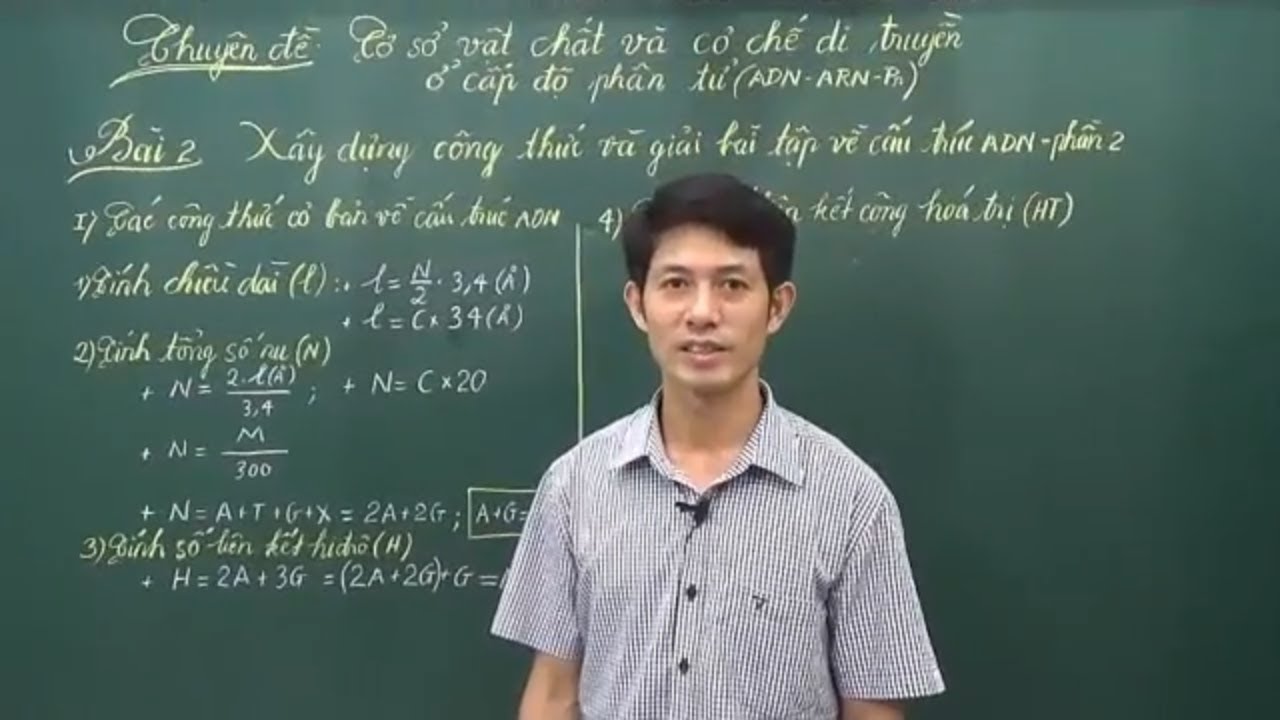 Chuyên đề: Cơ sở vật chất và cơ chế di truyền
ở cấp độ phân tử (ADN-ARN-Pr)
Bài 2 Xây dựng công thức và giải bài tập về cấu trúc ADN-phần 2
I) Các công thức cơ bản về cấu trúc ADN
1) Tính chiều dài (l): + l = N/2 · 3,4 (Å)
+ l = C × 34 (Å)
2) Tính tổng số nu (N)
+ N = 2·l(Å)/3,4 ; + N = C × 20
+ N = M/300
+ N = A+T+G+X = 2A+2G ; A+G=
3) Tính số liên kết hiđrô (H)
+ H = 2A + 3G = (2A+2G)+G =
4) kết cộng hoá trị (HT)